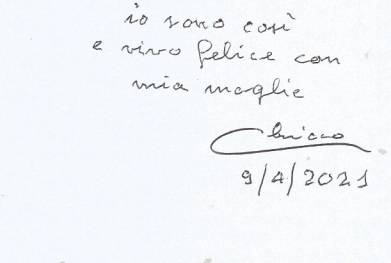 io sono così
e vivo felice con
mia moglie
Chicco
9/4/2021